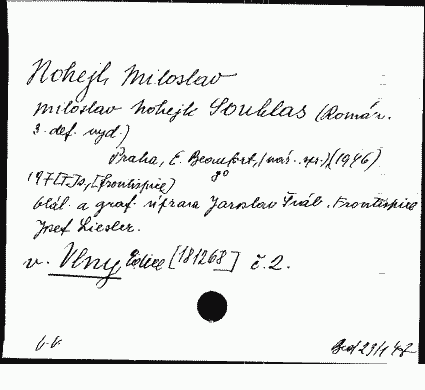 Nohejl Miloslav
Miloslav Nohejl Souhlas (Román.
3. def. vyd.)
Praha, E. Beaufort, (nás. spr.) (1946)
8°
197 [I] s., [frontispice]
obál. a graf. úprava Jaroslav Šváb. Frontispice
Josef Liesler.
v. Vlny Edice [181268] č. 2.